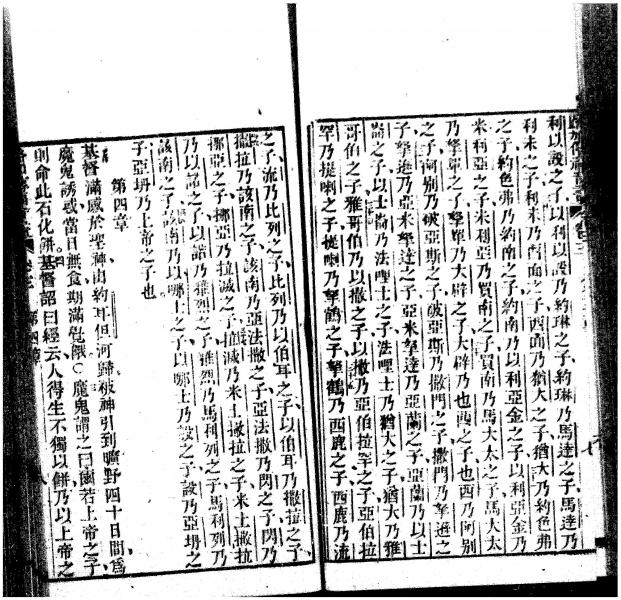 利以設之子以利以設乃約琳之子約琳乃馬達之子馬達乃
利未之子利未乃西面之子西面乃猶大之子猶大乃約色弗
之子約色弗乃約南之子約南乃以利亞金之子以利亞金乃
米利亞之子米利亞乃買南之子買南乃馬大太之子馬大太
乃拏單之子拏單乃大辟之子大辟乃也西之子也西乃阿別
之子阿別乃破亞斯之子破亞斯乃撒門之子撒門乃拏遜之
子拏遜乃亞米拏達之子亞米拏達乃亞蘭之子亞蘭乃以士
崙之子以士崙乃法哩士之子法哩士乃猶大之子猶大乃雅
哥伯之子雅哥伯乃以撒之子以撒乃亞伯拉罕之子亞伯拉
罕乃提喇之子提喇乃拏鶴之子拏鶴乃西鹿之子西鹿乃流
之子流乃比列之子比列乃以伯耳之子以伯耳乃撒拉之子
撒拉乃該南之子該南乃亞法撒之子亞法撒乃閃之子閃乃
挪亞之子挪亞乃拉滅之子拉滅乃米土撒拉之子米土撒拉
乃以諾之子以諾乃雅烈之子雅烈乃馬利列之子馬利列乃
該南之子該南乃以哪士之子以哪士乃設之子設乃亞坍之
子亞坍乃上帝之子也
第四章
基督滿感於聖神由約耳但河歸被神引到曠野四十日間為
魔鬼誘惑當日無食期滿覺餓○魔鬼謂之曰爾若上帝之子
則命此石化餅基督詔曰經云人得生不獨以餅乃以上帝之